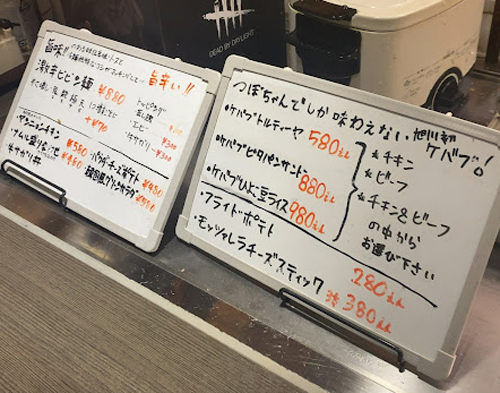 DEAD BY DAYLIGHT
旨味!!
旨辛い!!
激辛ビビン麺 ¥880
トッピング
¥300
牛サガリ ¥300
+¥70
ヤンニョムチキン ¥580
ナムル盛り合わせ ¥480
牛サガリ丼
バタチーズポテト ¥480
韓国風グリーンサラダ
つぼちゃんでしか味わえない旭川初ケバブ!
・ケバブトルティーヤ 580えん
・ケバブピタパンサンド 880えん
・ケバブひよこ豆ライス 980えん
*チキン
*ビーフ
*チキン&ビーフ
の中から
お選び下さい
・フライドポテト 280えん
・モッツァレラチーズスティック 380えん